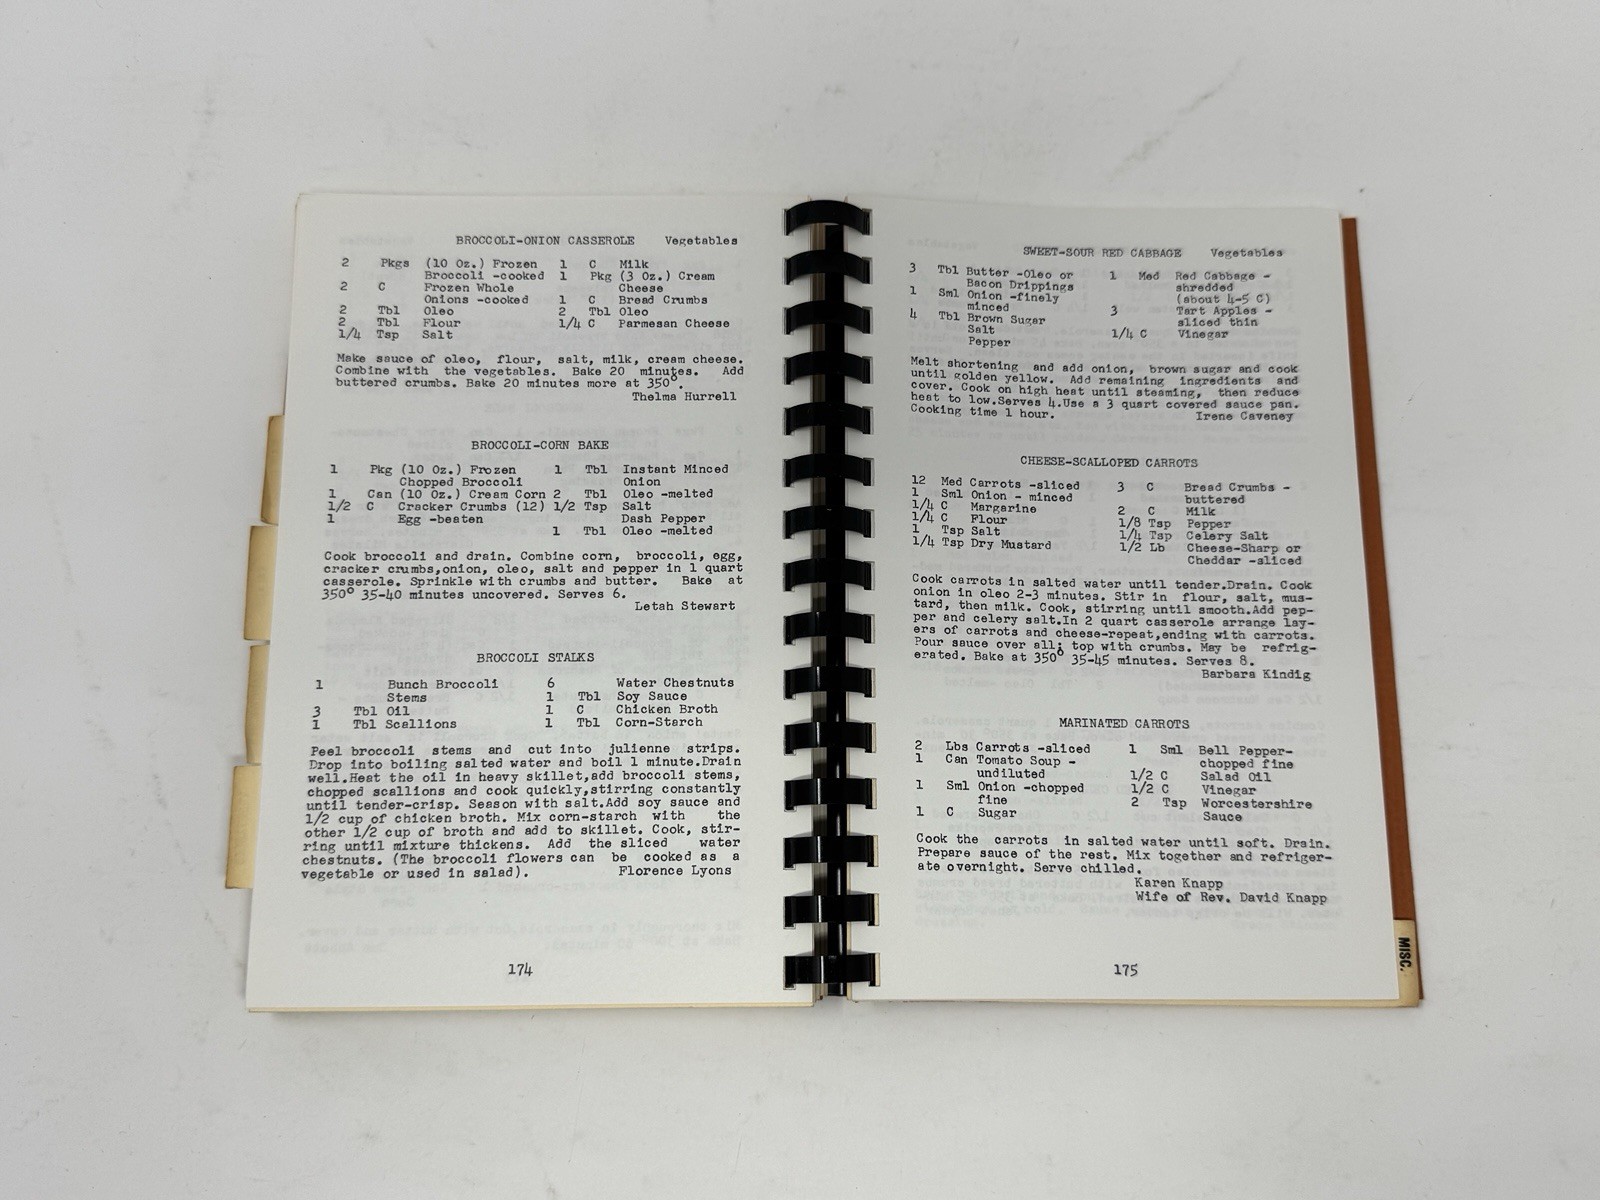 BROCCOLI-ONION CASSEROLE Vegetables
2 Pkgs (10 Oz.) Frozen 1 C Milk
Broccoli -cooked 1 Pkg (3 Oz.) Cream
2 C Frozen Whole Cheese
Onions -cooked 1 C Bread Crumbs
2 Tbl Oleo 2 Tbl Oleo
2 Tbl Flour 1/4 C Parmesan Cheese
1/4 Tsp Salt
Make sauce of oleo, flour, salt, milk, cream cheese.
Combine with the vegetables. Bake 20 minutes. Add
buttered crumbs. Bake 20 minutes more at 350°.
Thelma Hurrell
BROCCOLI-CORN BAKE
1 Pkg (10 Oz.) Frozen 1 Tbl Instant Minced
Chopped Broccoli Onion
1 Can (10 Oz.) Cream Corn 2 Tbl Oleo -melted
1/2 C Cracker Crumbs (12) 1/2 Tsp Salt
1 Egg -beaten Dash Pepper
1 Tbl Oleo -melted
Cook broccoli and drain. Combine corn, broccoli, egg,
cracker crumbs,onion, oleo, salt and pepper in 1 quart
casserole. Sprinkle with crumbs and butter. Bake at
350° 35-40 minutes uncovered. Serves 6.
Letah Stewart
BROCCOLI STALKS
1 Bunch Broccoli 6 Water Chestnuts
Stems 1 Tbl Soy Sauce
3 Tbl Oil 1 C Chicken Broth
1 Tbl Scallions 1 Tbl Corn-Starch
Peel broccoli stems and cut into julienne strips.
Drop into boiling salted water and boil 1 minute.Drain
well.Heat the oil in heavy skillet,add broccoli stems,
chopped scallions and cook quickly,stirring constantly
until tender-crisp. Season with salt.Add soy sauce and
1/2 cup of chicken broth. Mix corn-starch with the
other 1/2 cup of broth and add to skillet. Cook, stir-
ring until mixture thickens. Add the sliced water
chestnuts. (The broccoli flowers can be cooked as a
vegetable or used in salad). Florence Lyons
174
SWEET-SOUR RED CABBAGE Vegetables
3 Tbl Butter -Oleo or 1 Med Red Cabbage -
Bacon Drippings shredded
1 Sml Onion -finely (about 4-5 C)
minced 3 Tart Apples -
4 Tbl Brown Sugar sliced thin
Salt 1/4 C Vinegar
Pepper
Melt shortening and add onion, brown sugar and cook
until golden yellow. Add remaining ingredients and
cover. Cook on high heat until steaming, then reduce
heat to low.Serves 4.Use a 3 quart covered sauce pan.
Cooking time 1 hour. Irene Caveney
CHEESE-SCALLOPED CARROTS
12 Med Carrots -sliced 3 C Bread Crumbs -
1 Sml Onion - minced buttered
1/4 C Margarine 2 C Milk
1/4 C Flour 1/8 Tsp Pepper
1 Tsp Salt 1/4 Tsp Celery Salt
1/4 Tsp Dry Mustard 1/2 Lb Cheese-Sharp or
Cheddar -sliced
Cook carrots in salted water until tender.Drain. Cook
onion in oleo 2-3 minutes. Stir in flour, salt, mus-
tard, then milk. Cook, stirring until smooth.Add pep-
per and celery salt.In 2 quart casserole arrange lay-
ers of carrots and cheese-repeat,ending with carrots.
Pour sauce over all; top with crumbs. May be refrig-
erated. Bake at 350° 35-45 minutes. Serves 8.
Barbara Kindig
MARINATED CARROTS
2 Lbs Carrots -sliced 1 Sml Bell Pepper-
1 Can Tomato Soup - chopped fine
undiluted 1/2 C Salad Oil
1 Sml Onion -chopped 1/2 C Vinegar
fine 2 Tsp Worcestershire
1 C Sugar Sauce
Cook the carrots in salted water until soft. Drain.
Prepare sauce of the rest. Mix together and refriger-
ate overnight. Serve chilled.
Karen Knapp
Wife of Rev. David Knapp
175
MISC.